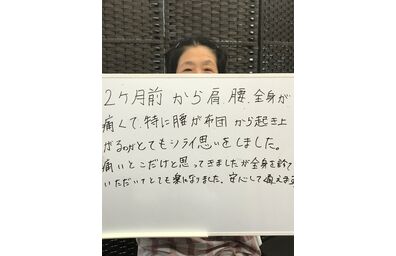 2ヶ月前から肩、腰、全身が
痛くて、特に腰が布団から起き上
がるのがとてもツライ思いをしました。
痛いとこだけと思ってきましたが全身を診て
いただいてとても楽になりました。安心して通えま